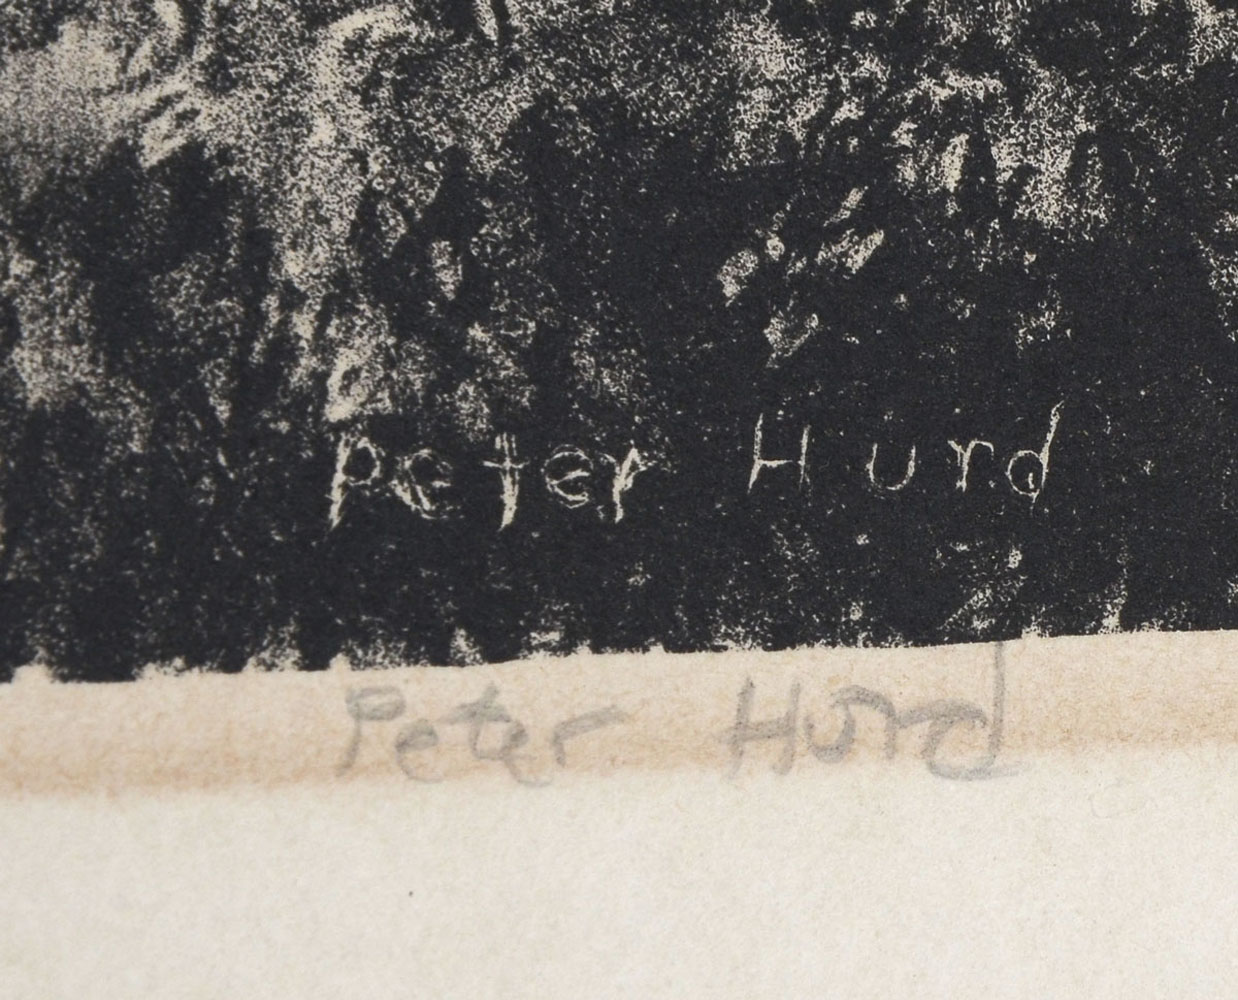 Peter Hurd
Peter Hurd